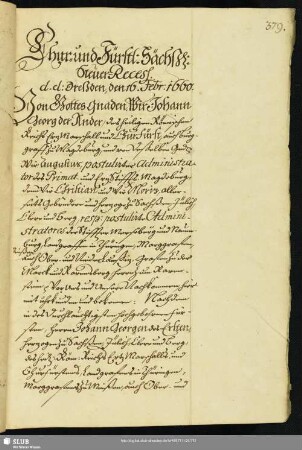 379.
Chur und Fürstl: Sächß:
Steuer Recess.
d. d. Dreßden, den 16. Febr. 1660.
Von Gottes Gnaden Wir Johann
Georg der Ander, des heiligen Römischen
Reichs Ertz Marschall und Churfürst, auch Burg-
graff zu Magdeburg und von deßelben Gnaden
Wir Augustus, postulirter Administra-
tor des Primat und Ertz Stiffts Magdeburg,
dann Wir Christian und Wir Moritz, aller-
seits Gebrüdere und Herzoge zu Sachßen, Jülich
Cleve und Berg, resp: postulirte Admini-
stratores der Stiffter Merseburg und Naum-
burg, Landgraffen in Thüringen, Marggraffen
auch Ober- und Nieder Laußitz, Graffen zu der
Marck und Ravensberg, Herrn zu Raven-
stein, vor Uns und Unsere Nachkommen hier-
mit uhrkunden und bekennen: Nachdem
in des Durchlauchtigsten Hochgebohrnen Für-
sten, Herrn Johann Georgen des Ersten,
Herzogen zu Sachßen, Jülich, Cleve und Berg,
des heil: Röm: Reichs Ertz Marschalls und
Churfürstens, Landgraffens in Thüringen,
Marggraffens zu Meißen, auch Ober- und
SLUB